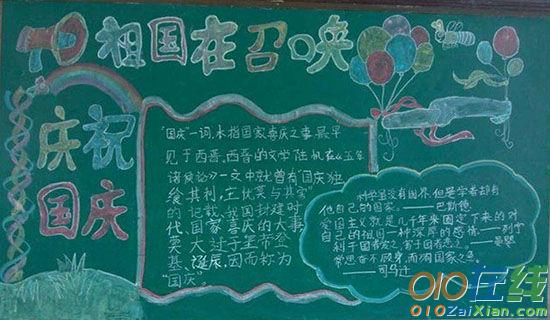 祖国在召唤
庆祝
国庆
"国庆"一词,本指国家喜庆之事,最早
见于西晋。西晋的文学陆机在《五等
诸侯论》一文中就曾有"国庆独
飨其利,主忧莫与其害"
的记载,我国封建时
代、国家喜庆的大事
莫大过于皇帝登
基、诞辰,因而称为
"国庆。
科学虽没有国界,但是学者却有
他自己的国家。——巴斯德
爱国主义就是几千年来固定下来的对
自己的祖国一种深厚的感情。——列宁
利于国者爱之,害于国者恶之。——晏婴
常思奋不顾身,而殉国家之急。
——司马迁
010在线
010ZaiXian.com